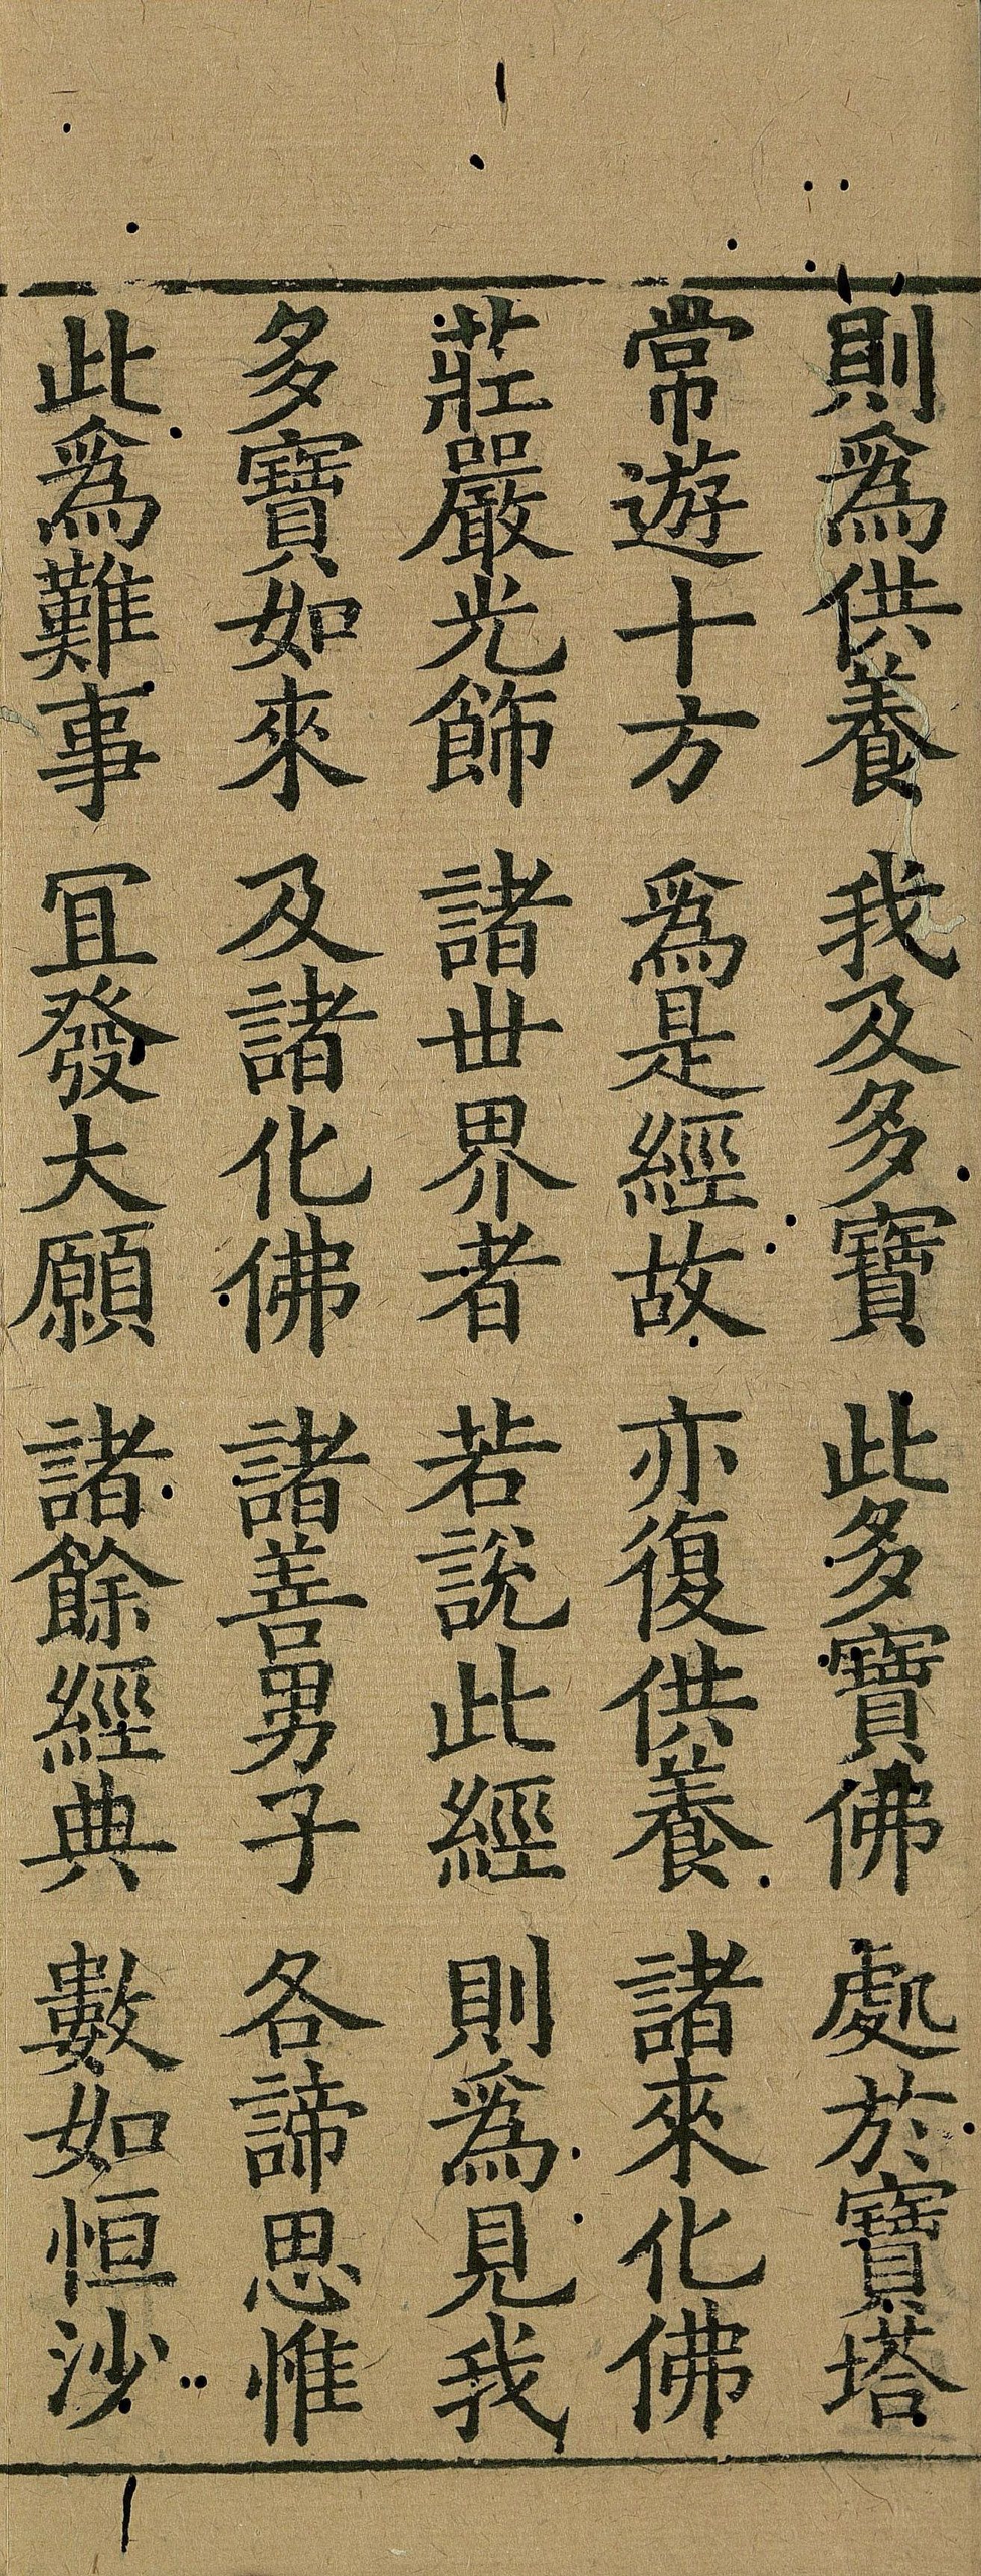 則爲供養 我及多寶 此多寶佛 處於寶塔
常遊十方 爲是經故 亦復供養 諸來化佛
莊嚴光飾 諸世界者 若說此經 則爲見我
多寶如來 及諸化佛 諸善男子 各諦思惟
此爲難事 冝發大願 諸餘經典 數如恒沙